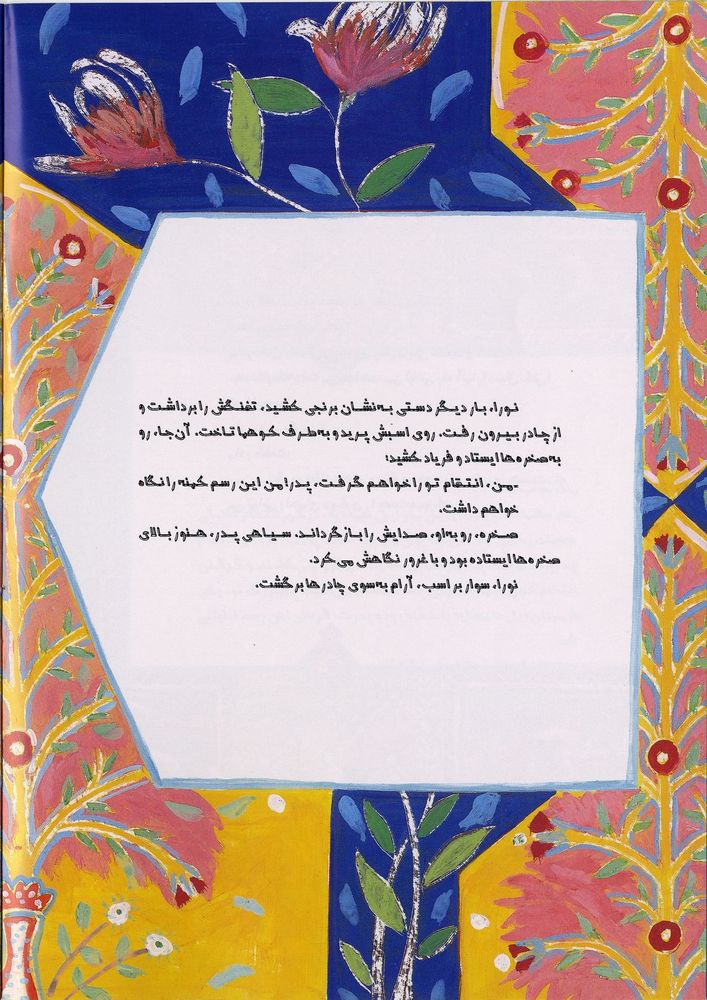 نورا، بار دیگر دستی به‌نشان برنجی کشید، تفنگش را برداشت و
از چادر بیرون رفت. روی اسبش پرید و به‌طرف کوهها تاخت. آن‌جا، رو
به صخره‌ها ایستاد و فریاد کشید:
-من، انتقام تو را خواهم گرفت، پدر! من این رسم کهنه را نگاه
خواهم داشت.
صخره، رو به‌او، صدایش را بازگرداند. سیاهی پدر، هنوز بالای
صخره‌ها ایستاده بود و با غرور نگاهش می‌کرد.
نورا، سوار بر اسب، آرام به‌سوی چادرها برگشت.